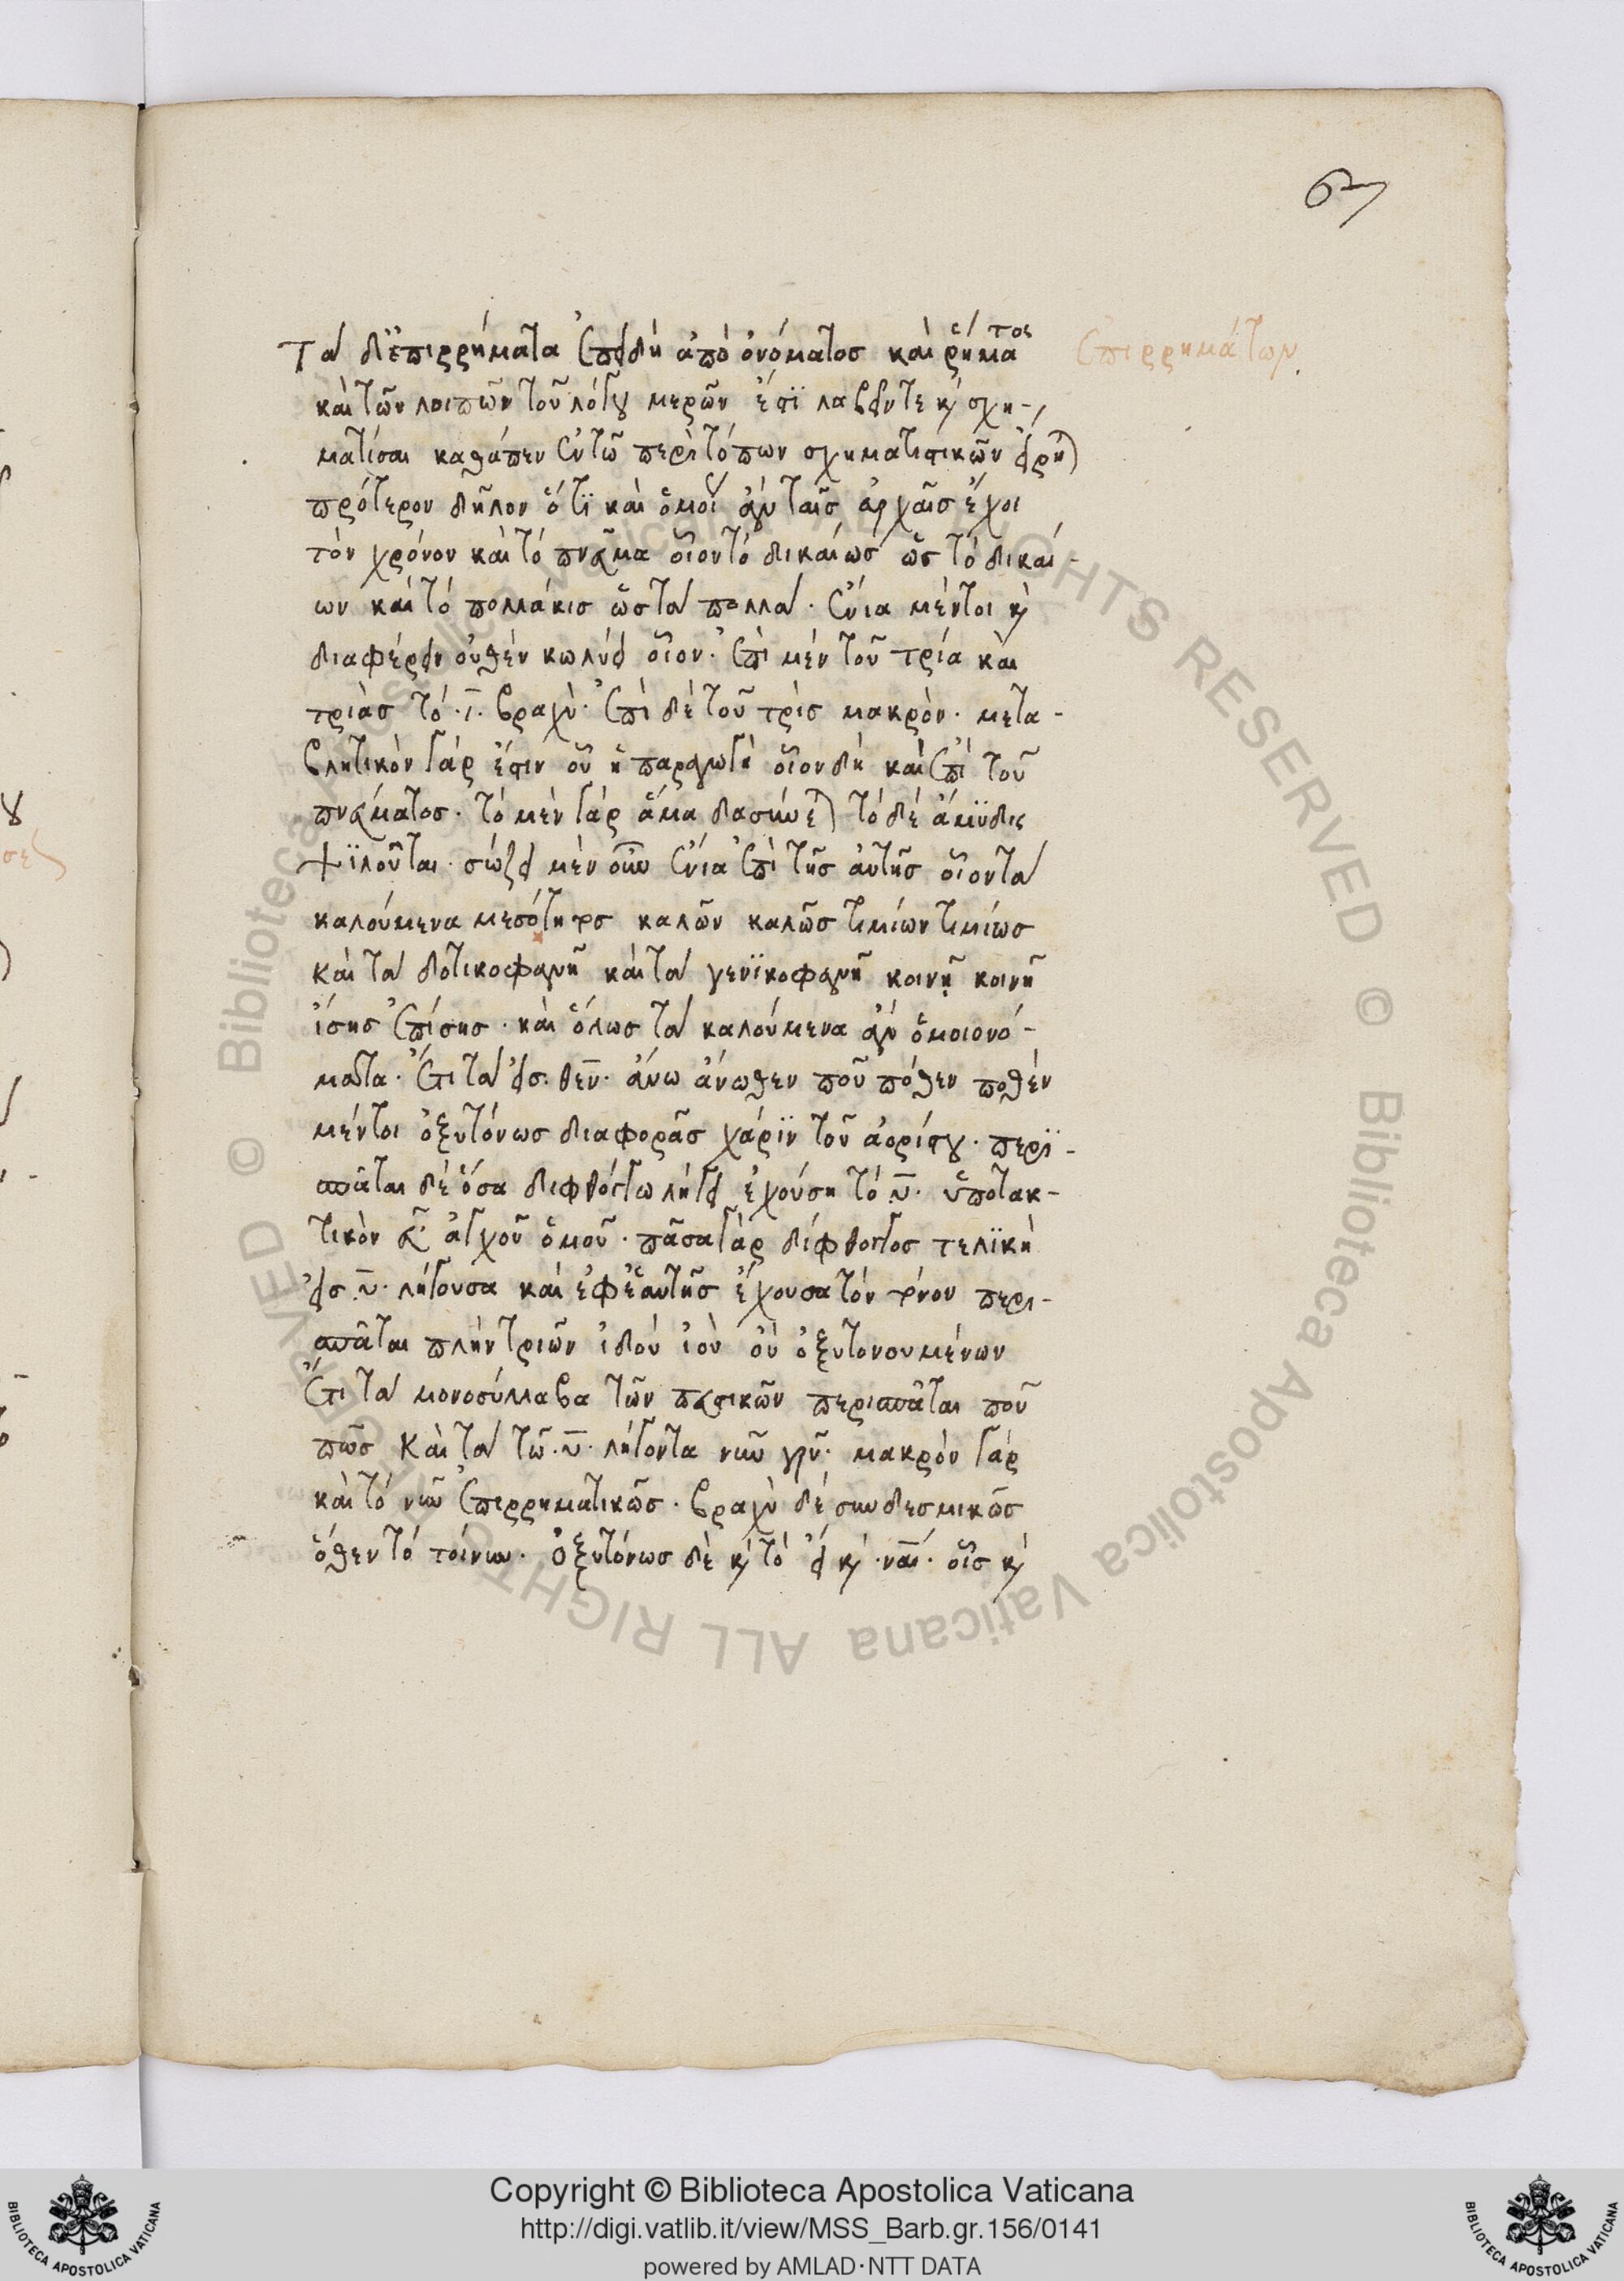 67
Τὰ δ' ἐπιρρήματα ἐπειδὴ ἀπὸ ὀνόματος καὶ ῥήματος
ἐπιρρημάτων
καὶ τῶν λοιπῶν τοῦ λόγου μερῶν ἔστι λαβεῖν τε κ σχη-
ματίσαι καθάπερ ἐν τῶ περὶ τόπων σχηματιστικῶν εἴρηται
πρότερον δῆλον ὅτι καὶ ὁμοῦ ἂν ταῖς ἀρχαῖς ἔχοι
τὸν χρόνον καὶ τὸ πνεῦμα οἷον τὸ δικαίως ὡς τὸ δικαί-
ων καὶ τὸ πολλάκις ὡς τὰ πολλά. ἔνια μέντοι κ
διαφέρειν οὐθὲν κωλύει οἷον. ἐπὶ μὲν τοῦ τρία καὶ
τριὰς τὸ ι βραχὺ. ἐπὶ δὲ τοῦ τρὶς μακρὸν. μετα-
βλητικὸν γάρ ἐστιν οὖν ἡ παραγωγὴ οἷον δὴ καὶ ἐπὶ τοῦ
πνεύματος. τὸ μὲν γὰρ ἅμα δασύνεται τὸ δὲ ἄμυδις
ψιλοῦται. σώζει μὲν οὖν ἔνια ἐπὶ τῆς αὐτῆς οἷον τὰ
καλούμενα μεσότητος καλῶν καλῶς τιμίων τιμίως
καὶ τὰ δοτικοφανῆ καὶ τὰ γενικοφανῆ κοινῇ κοινῆ
ἴσης ἐπίσης. καὶ ὅλως τὰ καλούμενα ἂν ὁμοιονό-
ματα. ἔτι τὰ εἰς θεν. ἄνω ἄνωθεν ποῦ πόθεν ποθὲν
μέντοι ὀξυτόνως διαφορᾶς χάριν τοῦ ἀορίστου. περι-
σπᾶται δὲ ὅσα διφθόγγω λήγει ἐχούση τὸ υ. ὑποτακ-
τικὸν εὖ ἀγχοῦ ὁμοῦ. πᾶσα γὰρ δίφθογγος τελικὴ
εἰς υ. λήγουσα καὶ ἐφ' ἑαυτῆς ἔχουσα τὸν τόνον περι-
σπᾶται πλὴν τριῶν ἰδοὺ ἰοὺ οὐ ὀξυτονουμένων
ἔτι τὰ μονοσύλλαβα τῶν πευστικῶν περισπᾶται ποῦ
πῶς καὶ τὰ τῶ. υ. λήγοντα νῦν γρῦ. μακρὸν γὰρ
καὶ τὸ νῦν ἐπιρρηματικῶς. βραχὺ δὲ συνδεσμικῶς
ὅθεν τὸ τοίνυν. ὀξυτόνως δὲ κ τὸ εἰ κ. ναί. οἷς κ
Copyright © Biblioteca Apostolica Vaticana
http://digi.vatlib.it/view/MSS_Barb.gr.156/0141
powered by AMLAD·NTT DATA